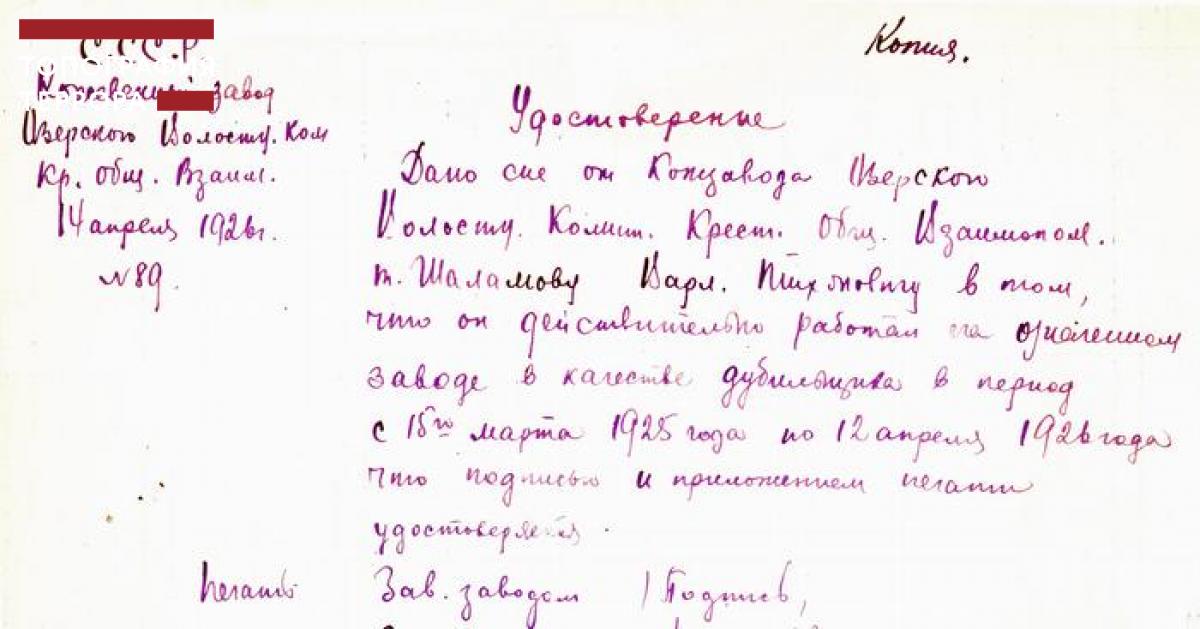 Копия.
С.С.С.Р.
завод
Озерского Волостн. Ком
Кр. Общ. Взаим.
14 апреля 1926г.
№ 89.
Удостоверение
Дано сие от Кожзавода Озерского
Волостн. Комит. Крест. Общ. Взаимопом.
т. Шаламову Варл. Тихоновичу в том,
что он действительно работал на означенном
заводе в качестве дубильщика в период
с 15го марта 1925 года по 12 апреля 1926 года
что подписью и приложением печати
удостоверяется.
Печать
Зав. заводом / Подпись,